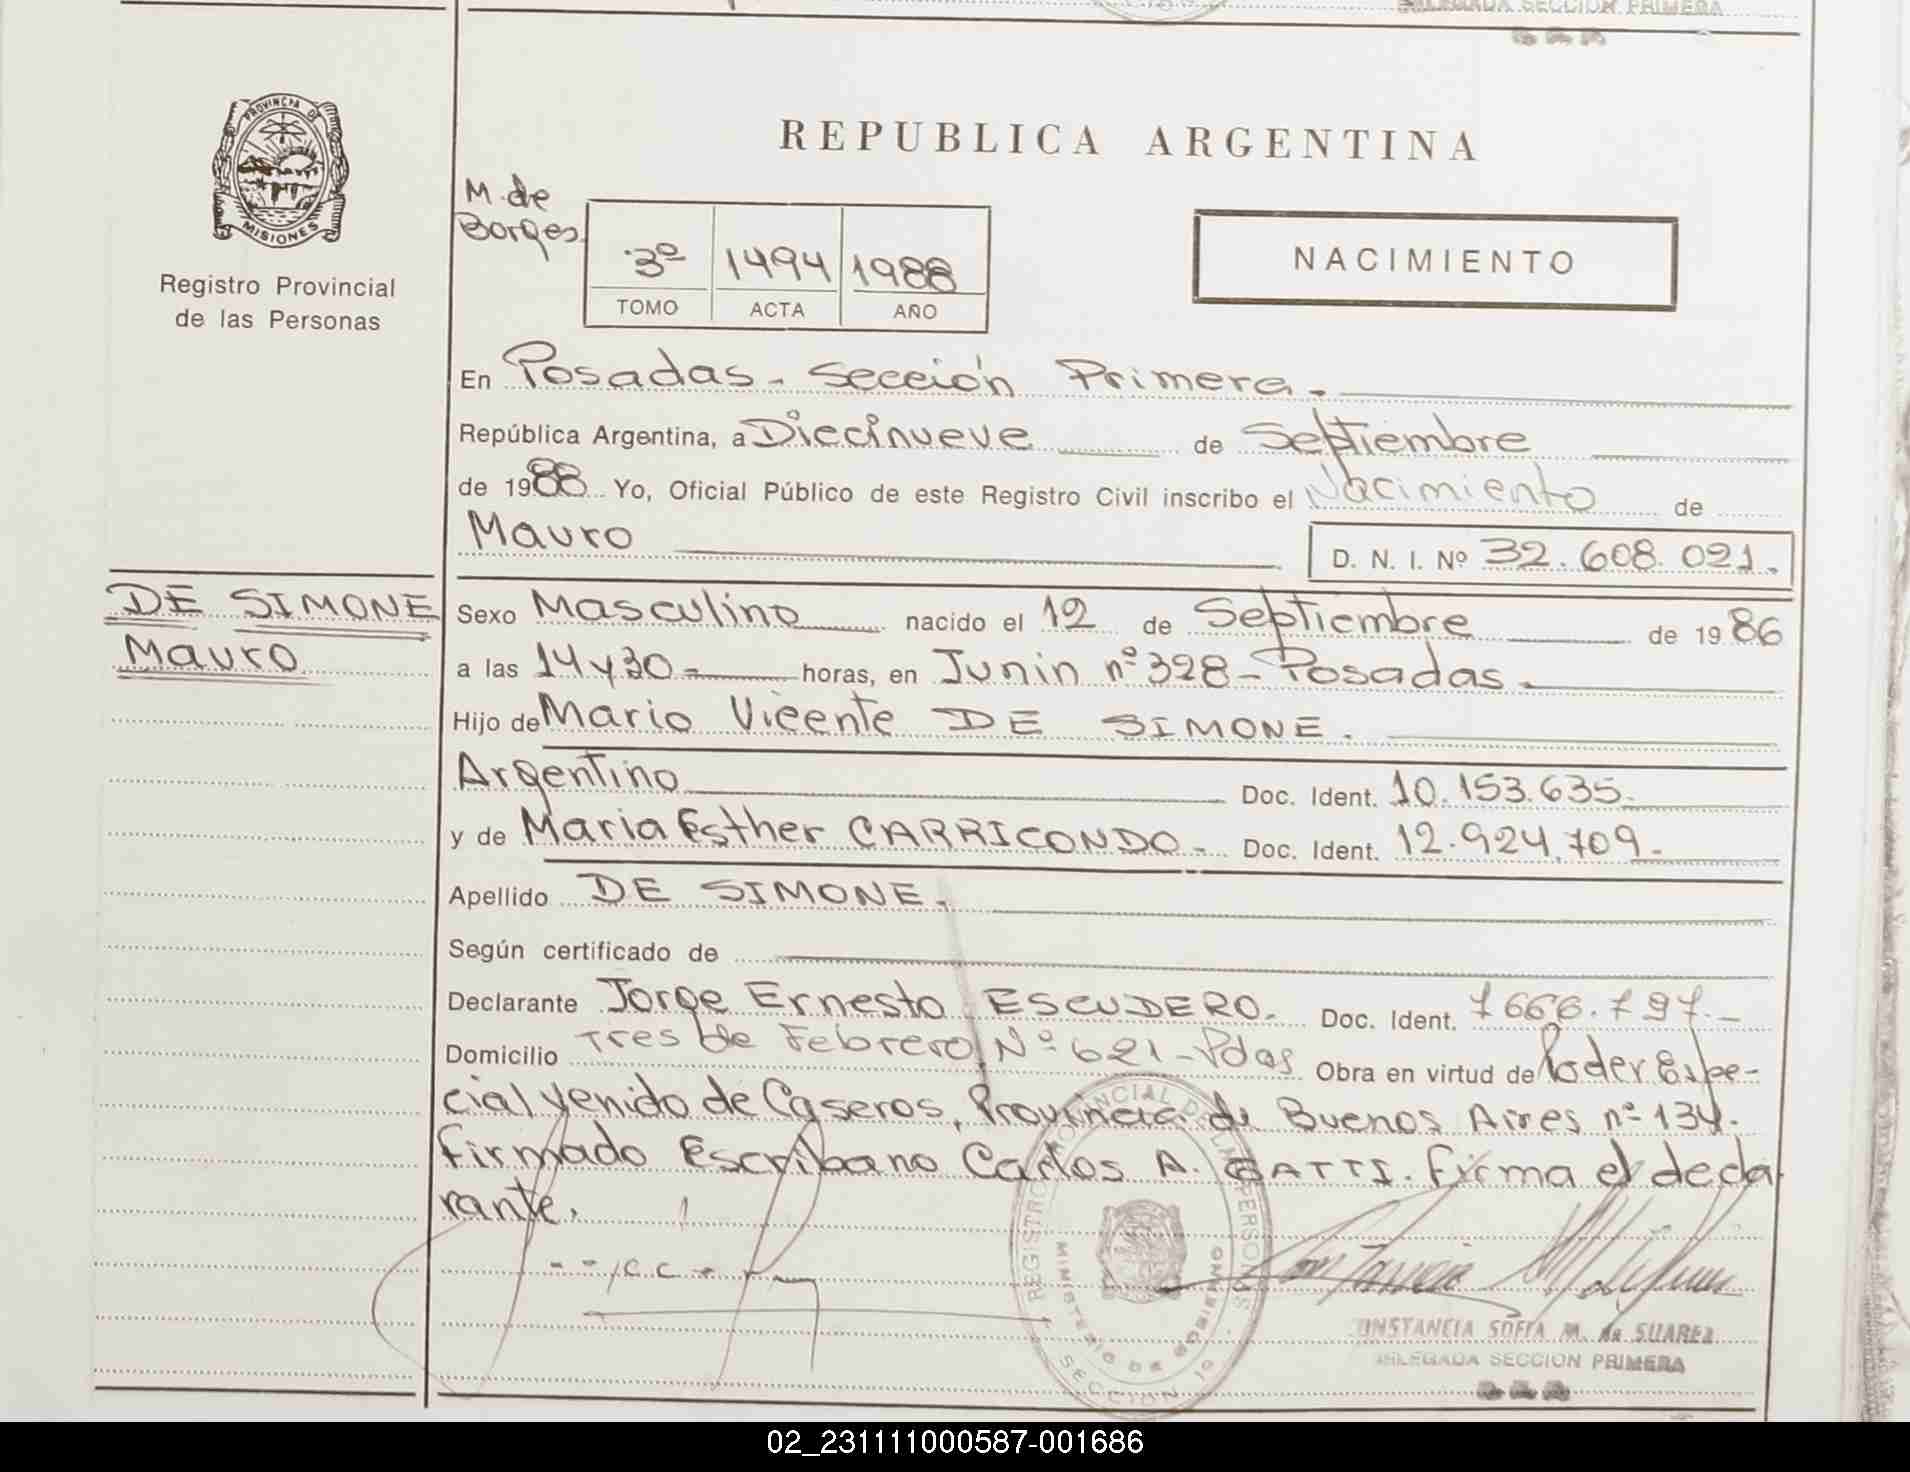 DELEGADA SECCION PRIMERA
PROVINCIA DE
MISIONES
Registro Provincial
de las Personas
REPUBLICA ARGENTINA
M. de
Borges
3º 1494 1988
TOMO ACTA AÑO
NACIMIENTO
En Posadas - Sección Primera.
República Argentina, a Diecinueve de Septiembre
de 1988 Yo, Oficial Público de este Registro Civil inscribo el Nacimiento de
Mauro D. N. I. Nº 32.608.021.
DE SIMONE
Mauro
Sexo Masculino nacido el 12 de Septiembre de 1986
a las 14 y 30 = horas, en Junin nº 328 - Posadas.
Hijo de Mario Vicente DE SIMONE.
Argentino Doc. Ident. 10.153.635.
y de Maria Esther CARRICONDO. Doc. Ident. 12.924.709.
Apellido DE SIMONE.
Según certificado de
Declarante Jorge Ernesto ESCUDERO. Doc. Ident. 7666.797.
Domicilio Tres de Febrero Nº 621 - Pdas Obra en virtud de Poder Espe-
cial venido de Caseros, Provincia de Buenos Aires nº 134.
firmado Escribano Carlos A. GATTI. Firma el decla
rante.
REGISTRO PROVINCIAL DE LAS PERSONAS
MINISTERIO DE GOBIERNO
SECCION 1º
CONSTANCIA SOFIA M. de SUAREZ
DELEGADA SECCION PRIMERA
02_231111000587-001686